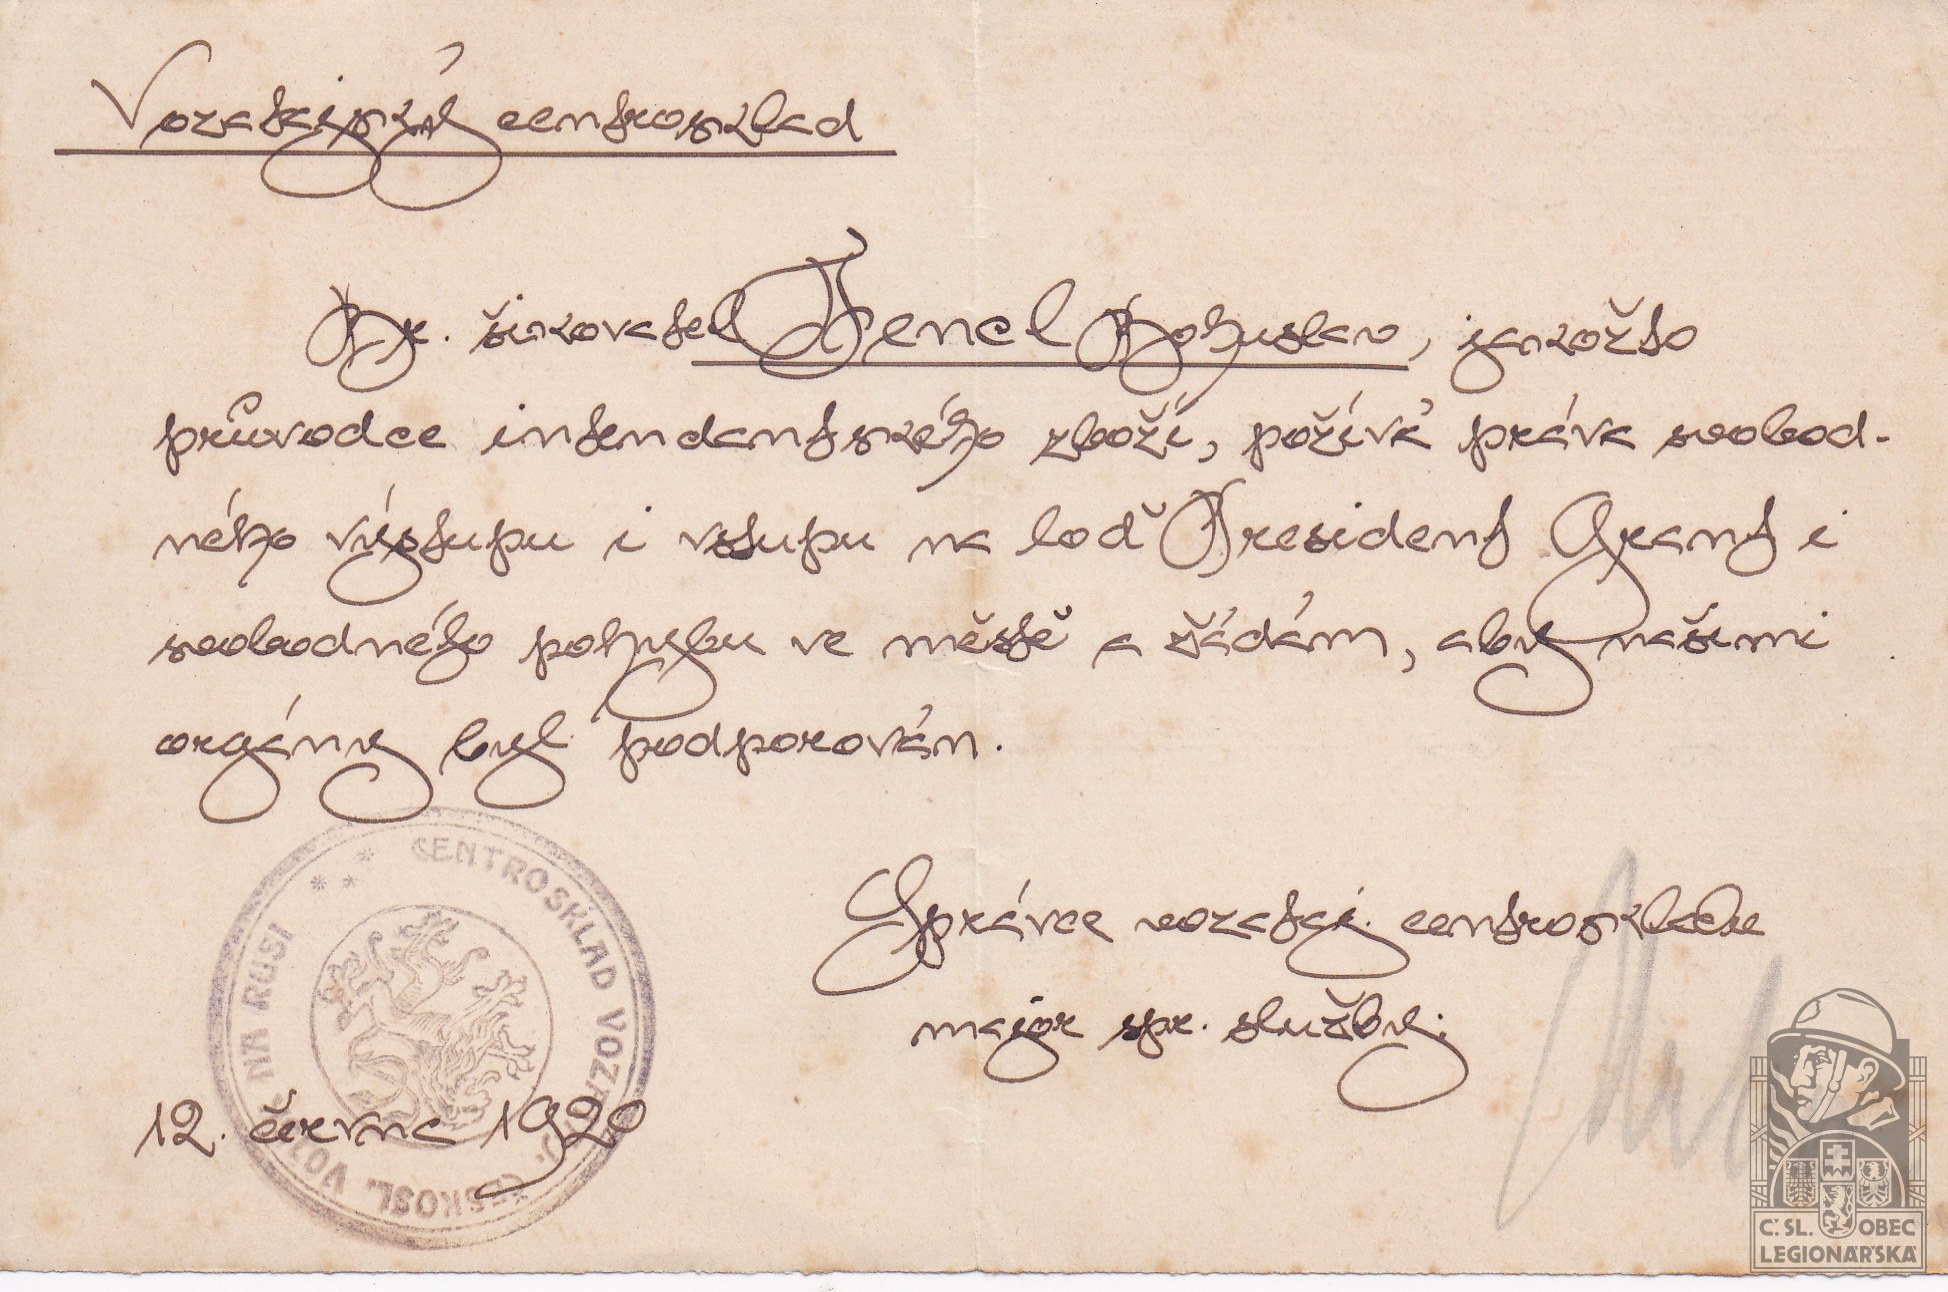 Vozatajský centrosklad
Br. šikovatel Fencl Bohuslav, jakožto
průvodce intendantského zboží, požívá práva svobod-
ného výstupu i vstupu na loď President Grant i
svobodného pohybu ve městě a žádám, aby našimi
orgány byl podporován.
CENTROSKLAD VOZATAJ. ČESKOSL. VOJSK NA RUSI
Správce vozataj. centroskladu
major spr. služby:
12. června 1920
Č. SL. OBEC
LEGIONÁŘSKÁ